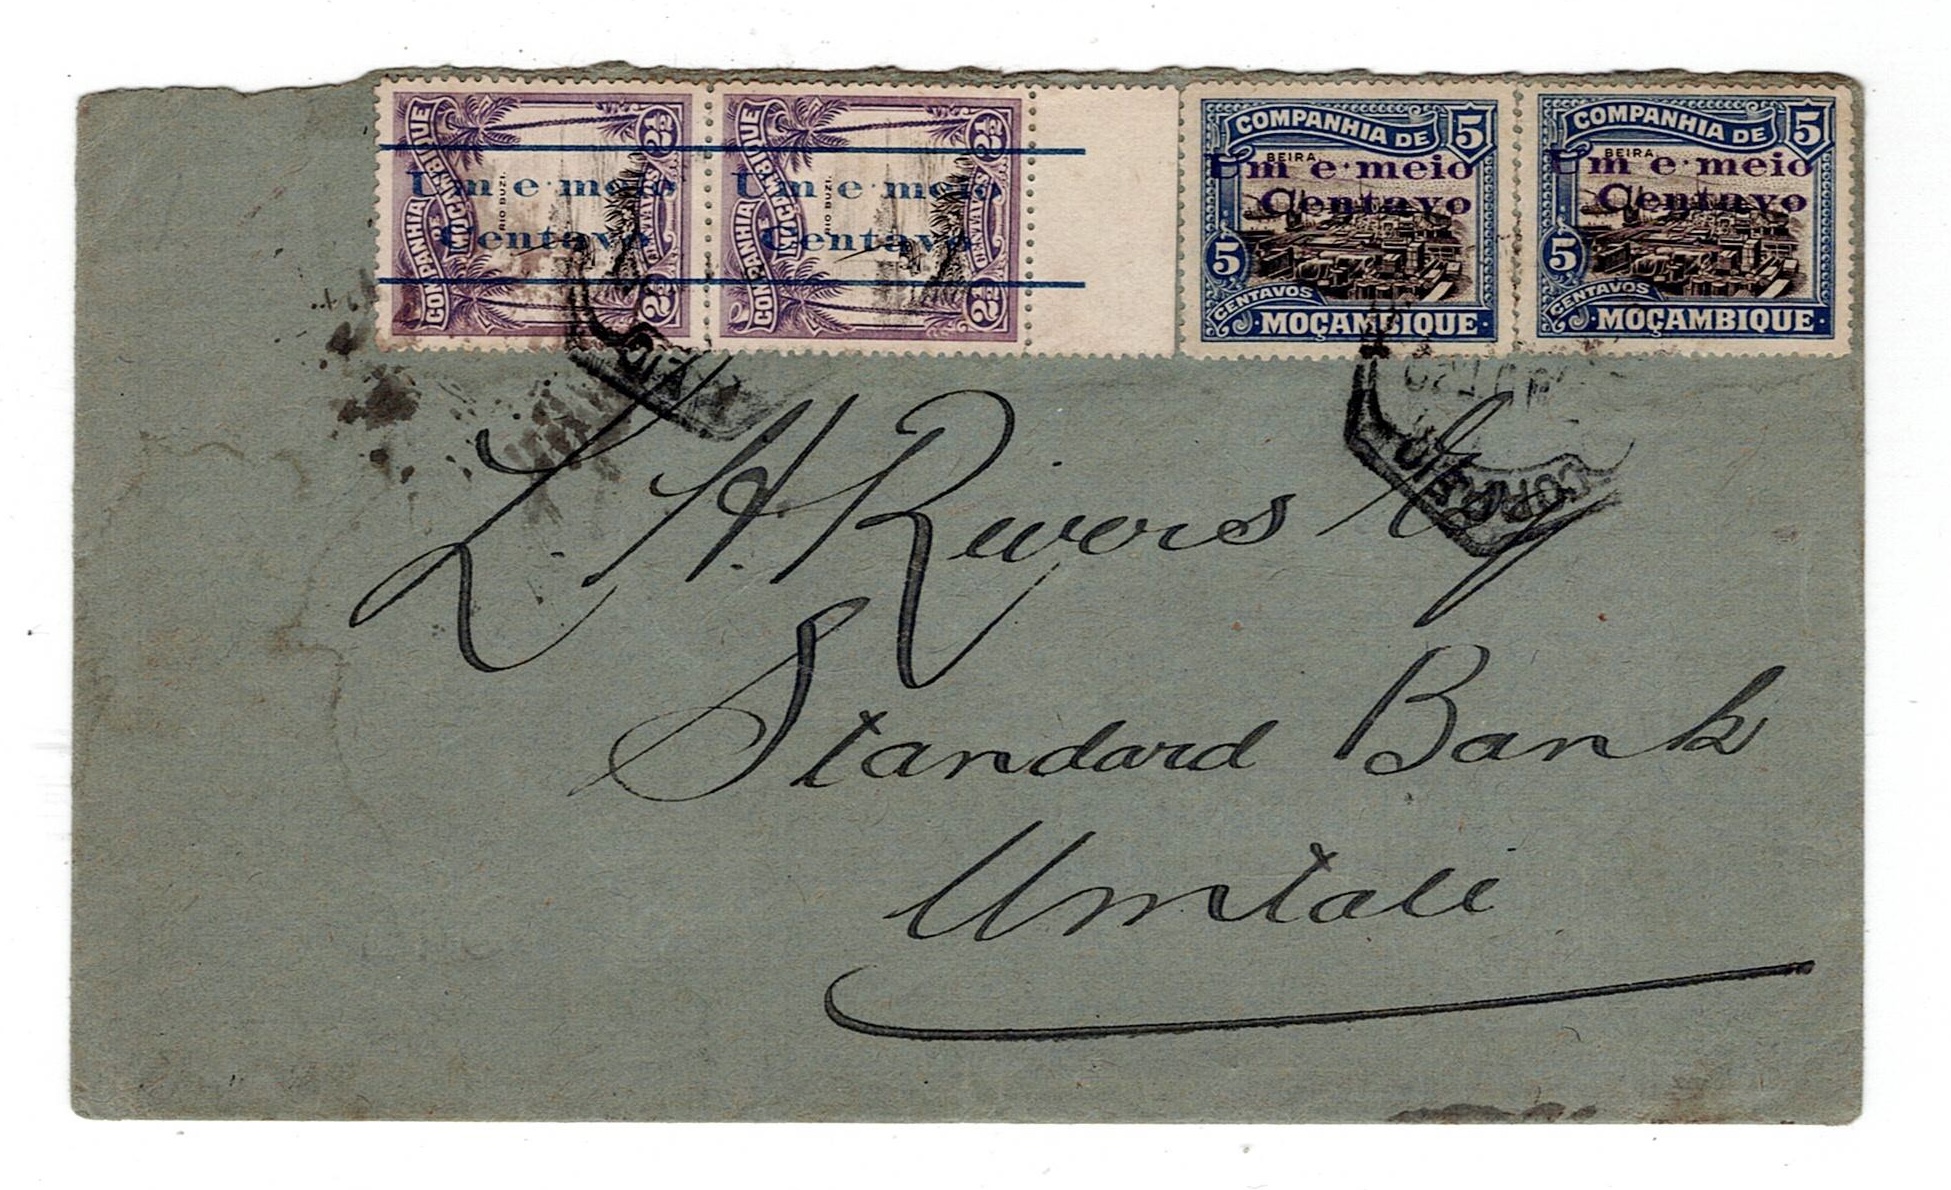 COMPANHIA DE MOÇAMBIQUE
2½
RIO BUZI.
Um e meio
Centavo
CENTAVOS
2½
COMPANHIA DE MOÇAMBIQUE
2½
RIO BUZI.
Um e meio
Centavo
CENTAVOS
2½
COMPANHIA DE 5
BEIRA
Um e meio
Centavo
5
CENTAVOS
MOÇAMBIQUE
COMPANHIA DE 5
BEIRA
Um e meio
Centavo
5
CENTAVOS
MOÇAMBIQUE
CORREIO
L. H. Rivers Esq
Standard Bank
Umtali